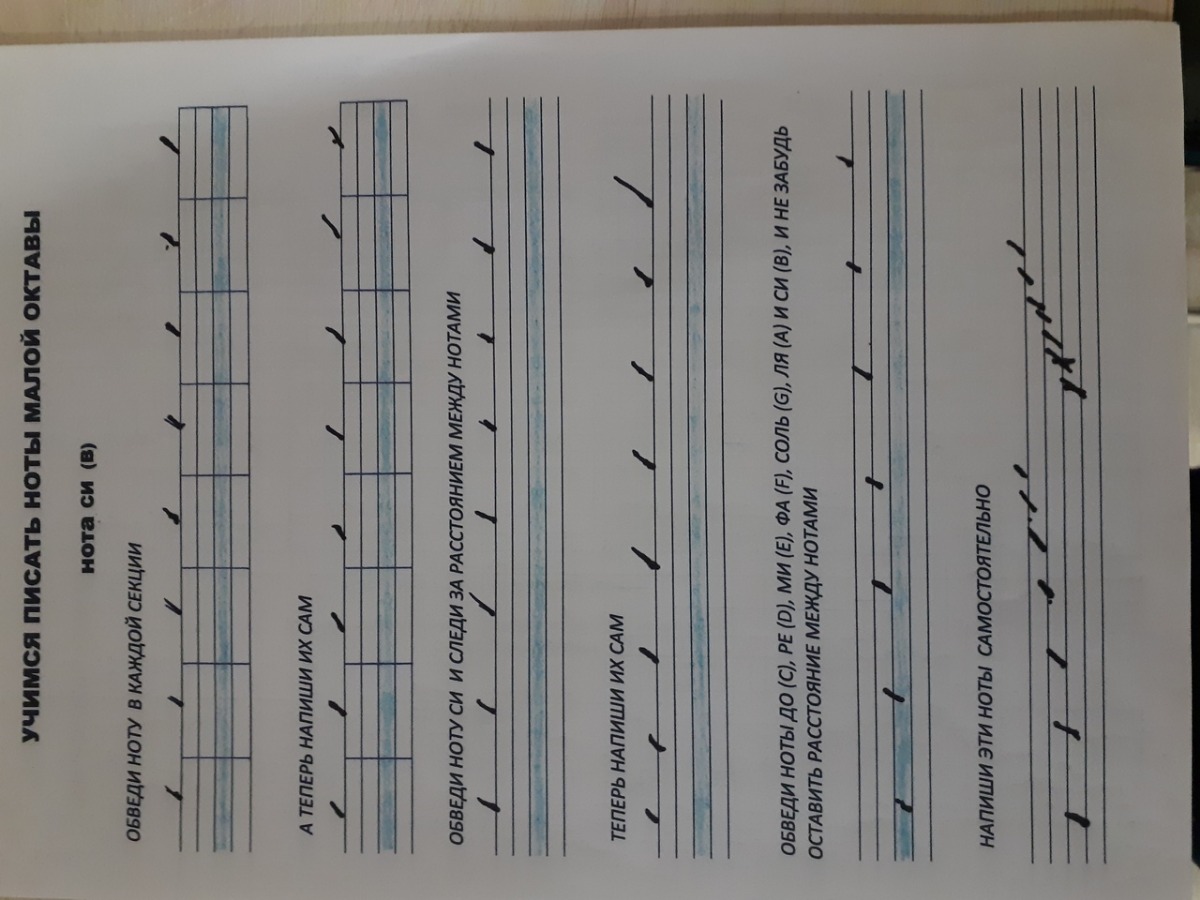 УЧИМСЯ ПИСАТЬ НОТЫ МАЛОЙ ОКТАВЫ
НОТА СИ (B)
ОБВЕДИ НОТУ В КАЖДОЙ СЕКЦИИ
А ТЕПЕРЬ НАПИШИ ИХ САМ
ОБВЕДИ НОТУ СИ И СЛЕДИ ЗА РАССТОЯНИЕМ МЕЖДУ НОТАМИ
ТЕПЕРЬ НАПИШИ ИХ САМ
ОБВЕДИ НОТЫ ДО (C), РЕ (D), МИ (E), ФА (F), СОЛЬ (G), ЛЯ (A) И СИ (B), И НЕ ЗАБУДЬ
ОСТАВИТЬ РАССТОЯНИЕ МЕЖДУ НОТАМИ
НАПИШИ ЭТИ НОТЫ САМОСТОЯТЕЛЬНО